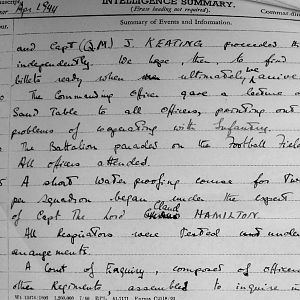 INTELLIGENCE SUMMARY.
(Erase heading not required).
Apr. 1944
Summary of Events and Information.
and Capt (Q.M.) J. KEATING proceeded
independently. We hope then to find
billets ready when we ultimately arrive
The Commanding Officer gave a lecture
Sand Table to all officers, pointing out
problems of cooperating with Infantry.
The Battalion paraded on the Football Field
All officers attended.
A short waterproofing course for
per squadron began under the expert
of Capt The Lord Claud HAMILTON.
All Respirators were tested under
arrangements.
A Court of Enquiry, composed of officers
other Regiments, assembled to inquire